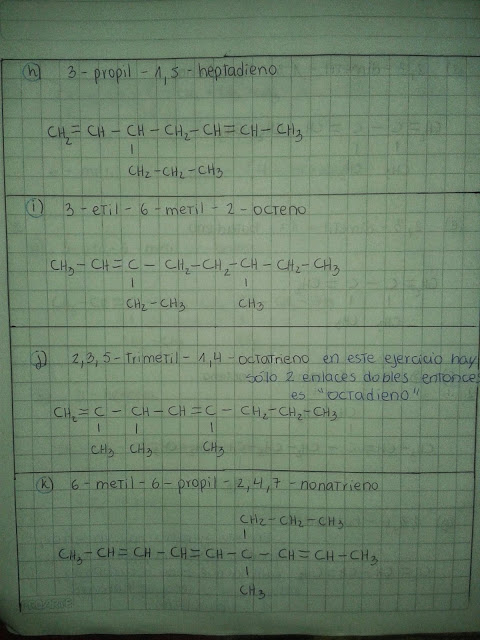 h) 3-propil-1,5-heptadieno
CH₂=CH-CH-CH₂-CH=CH-CH₃
CH₂-CH₂-CH₃
i) 3-etil-6-metil-2-octeno
CH₃-CH=C-CH₂-CH₂-CH-CH₂-CH₃
CH₂-CH₃ CH₃
j) 2,3,5-Trimetil-1,4-octatrieno en este ejercicio hay
sólo 2 enlaces dobles entonces
es "octadieno"
CH₂=C-CH-CH=C-CH₂-CH₂-CH₃
CH₃ CH₃ CH₃
k) 6-metil-6-propil-2,4,7-nonatrieno
CH₂-CH₂-CH₃
CH₃-CH=CH-CH=CH-C-CH=CH-CH₃
CH₃